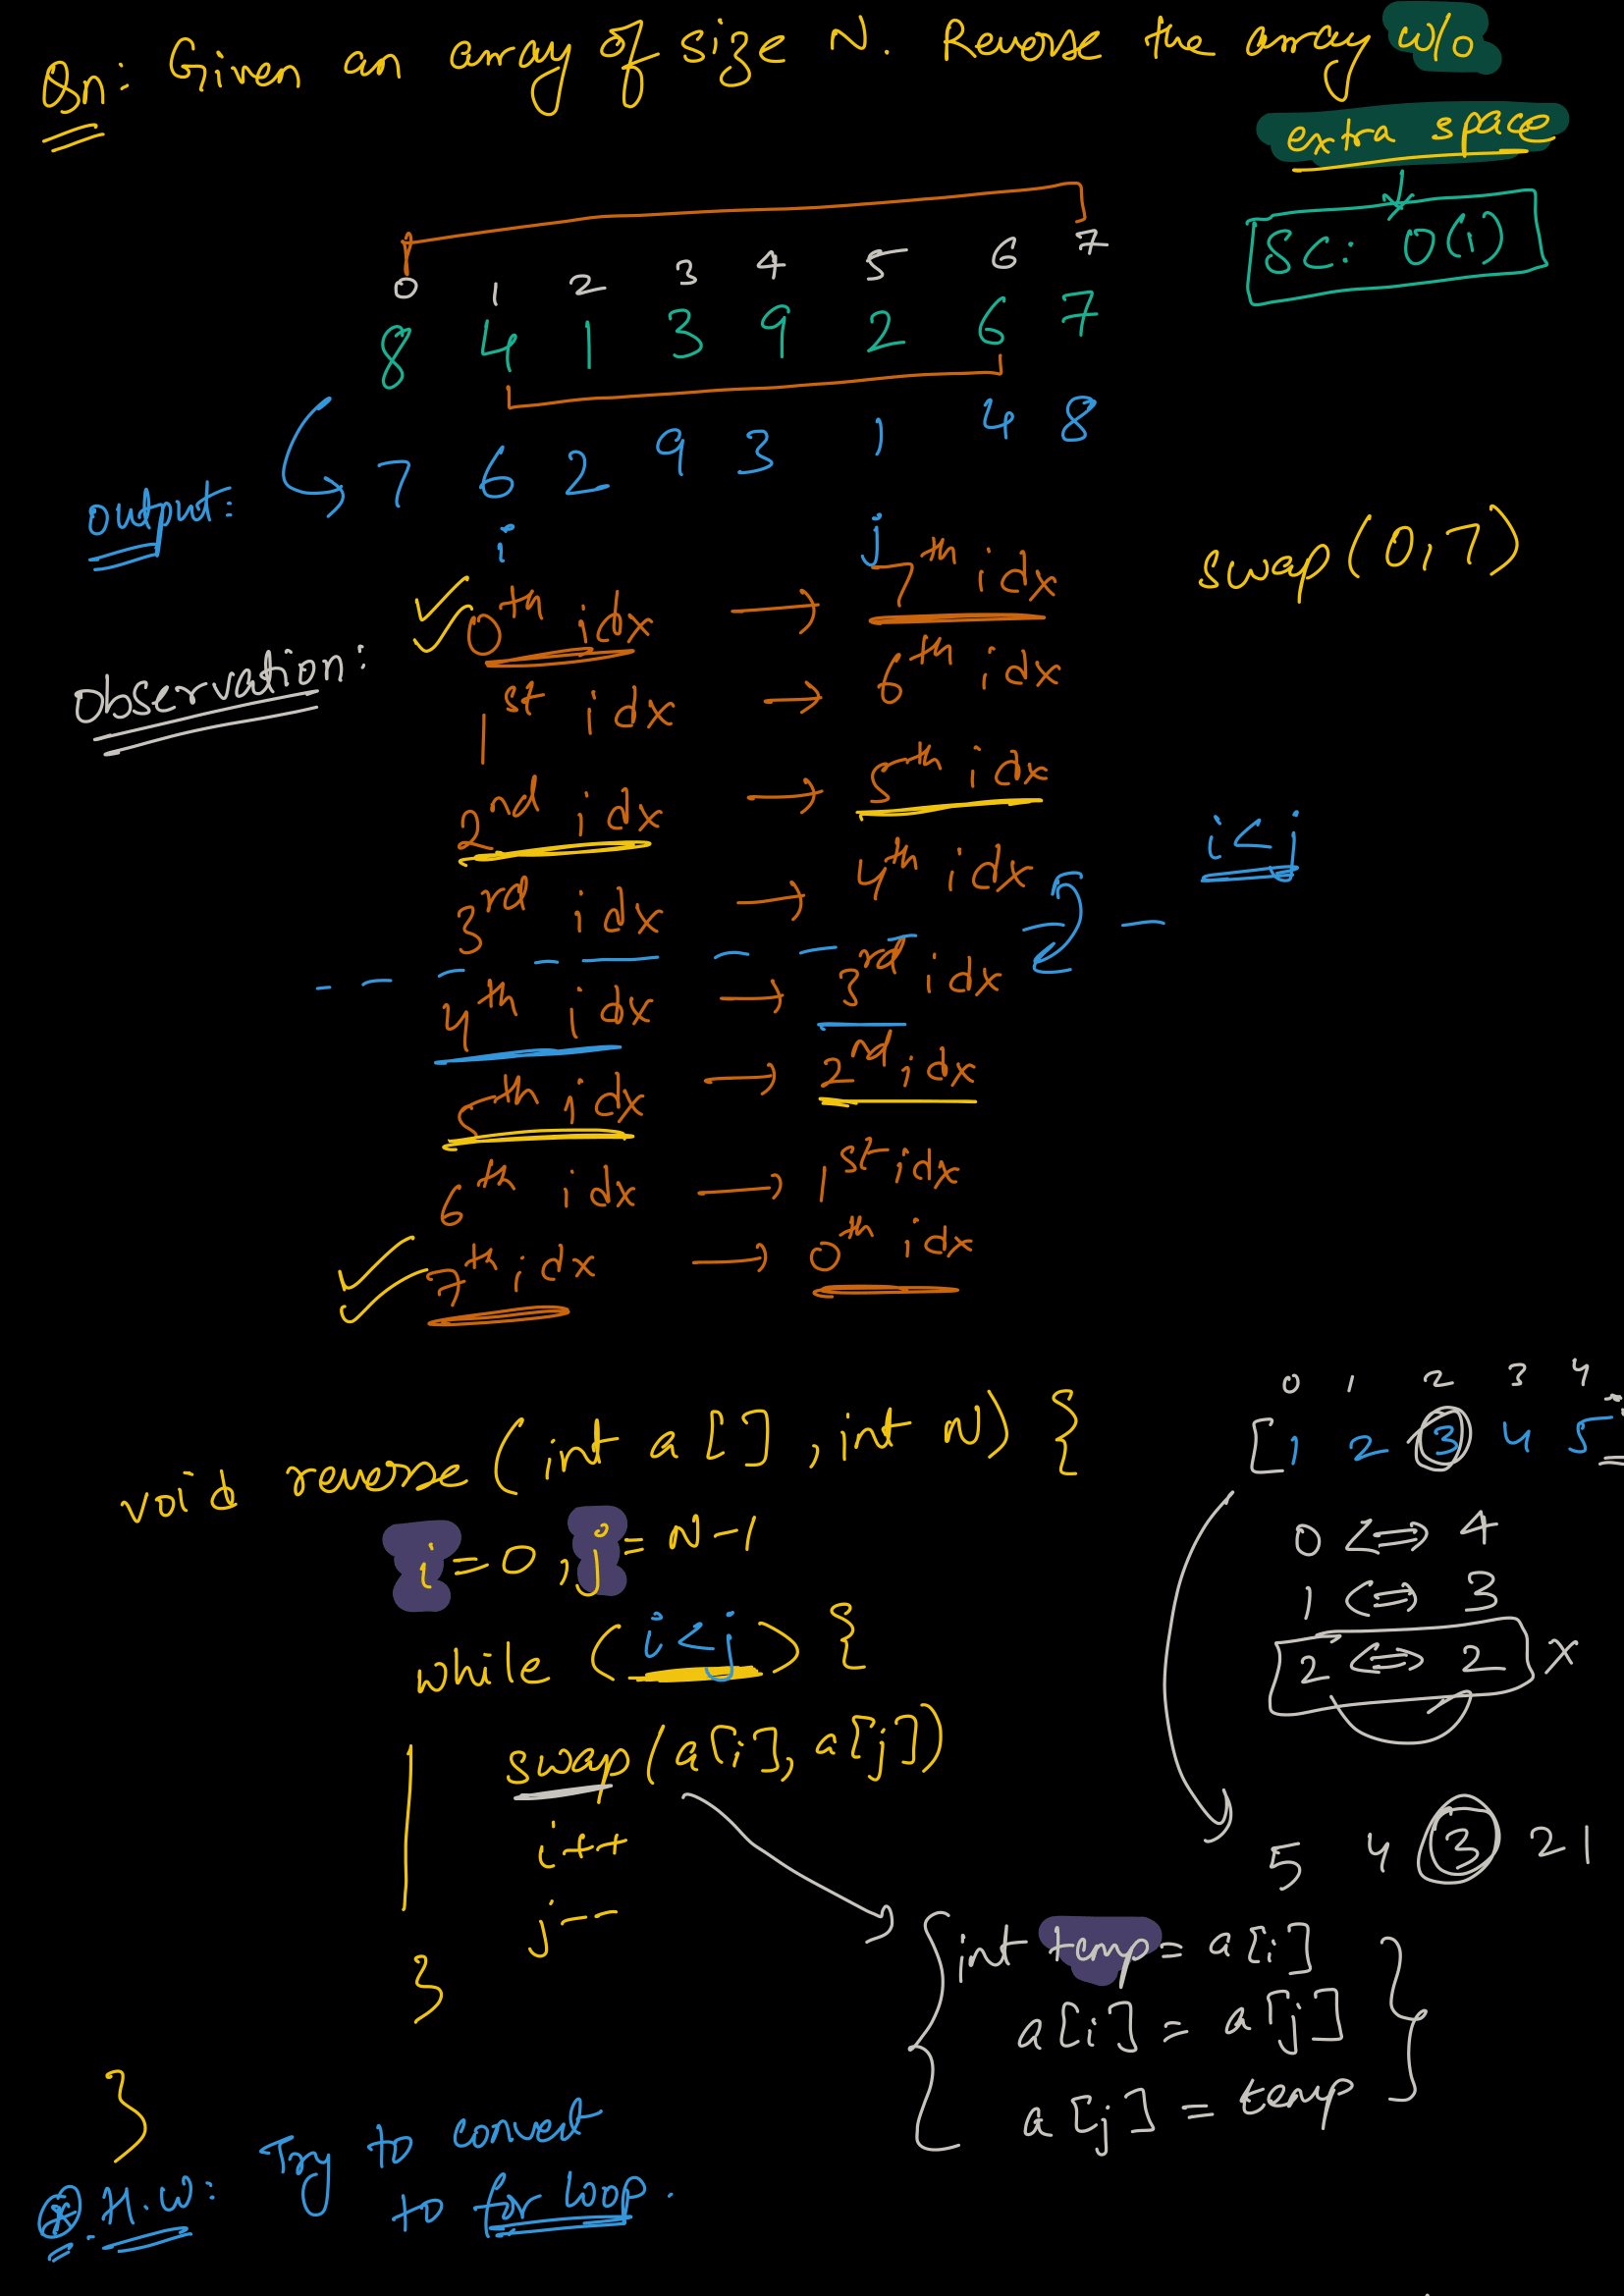 Qn: Given an array of size N. Reverse the array w/o
extra space
SC: O(1)
0 1 2 3 4 5 6 7
8 4 1 3 9 2 6 7
output: 7 6 2 9 3 1 4 8
i j
swap(0,7)
Observation: 0th idx → 7th idx
1st idx → 6th idx
2nd idx → 5th idx
i<j
3rd idx → 4th idx
4th idx → 3rd idx
5th idx → 2nd idx
6th idx → 1st idx
7th idx → 0th idx
void reverse (int a[], int N) {
i=0, j=N-1
while (i<j) {
swap(a[i], a[j])
i++
j--
}
}
0 1 2 3 4
[1 2 3 4 5]
0 <=> 4
1 <=> 3
2 <=> 2 x
5 4 3 2 1
{ int temp = a[i]
a[i] = a[j]
a[j] = temp }
*. H.W: Try to convert
to for loop.